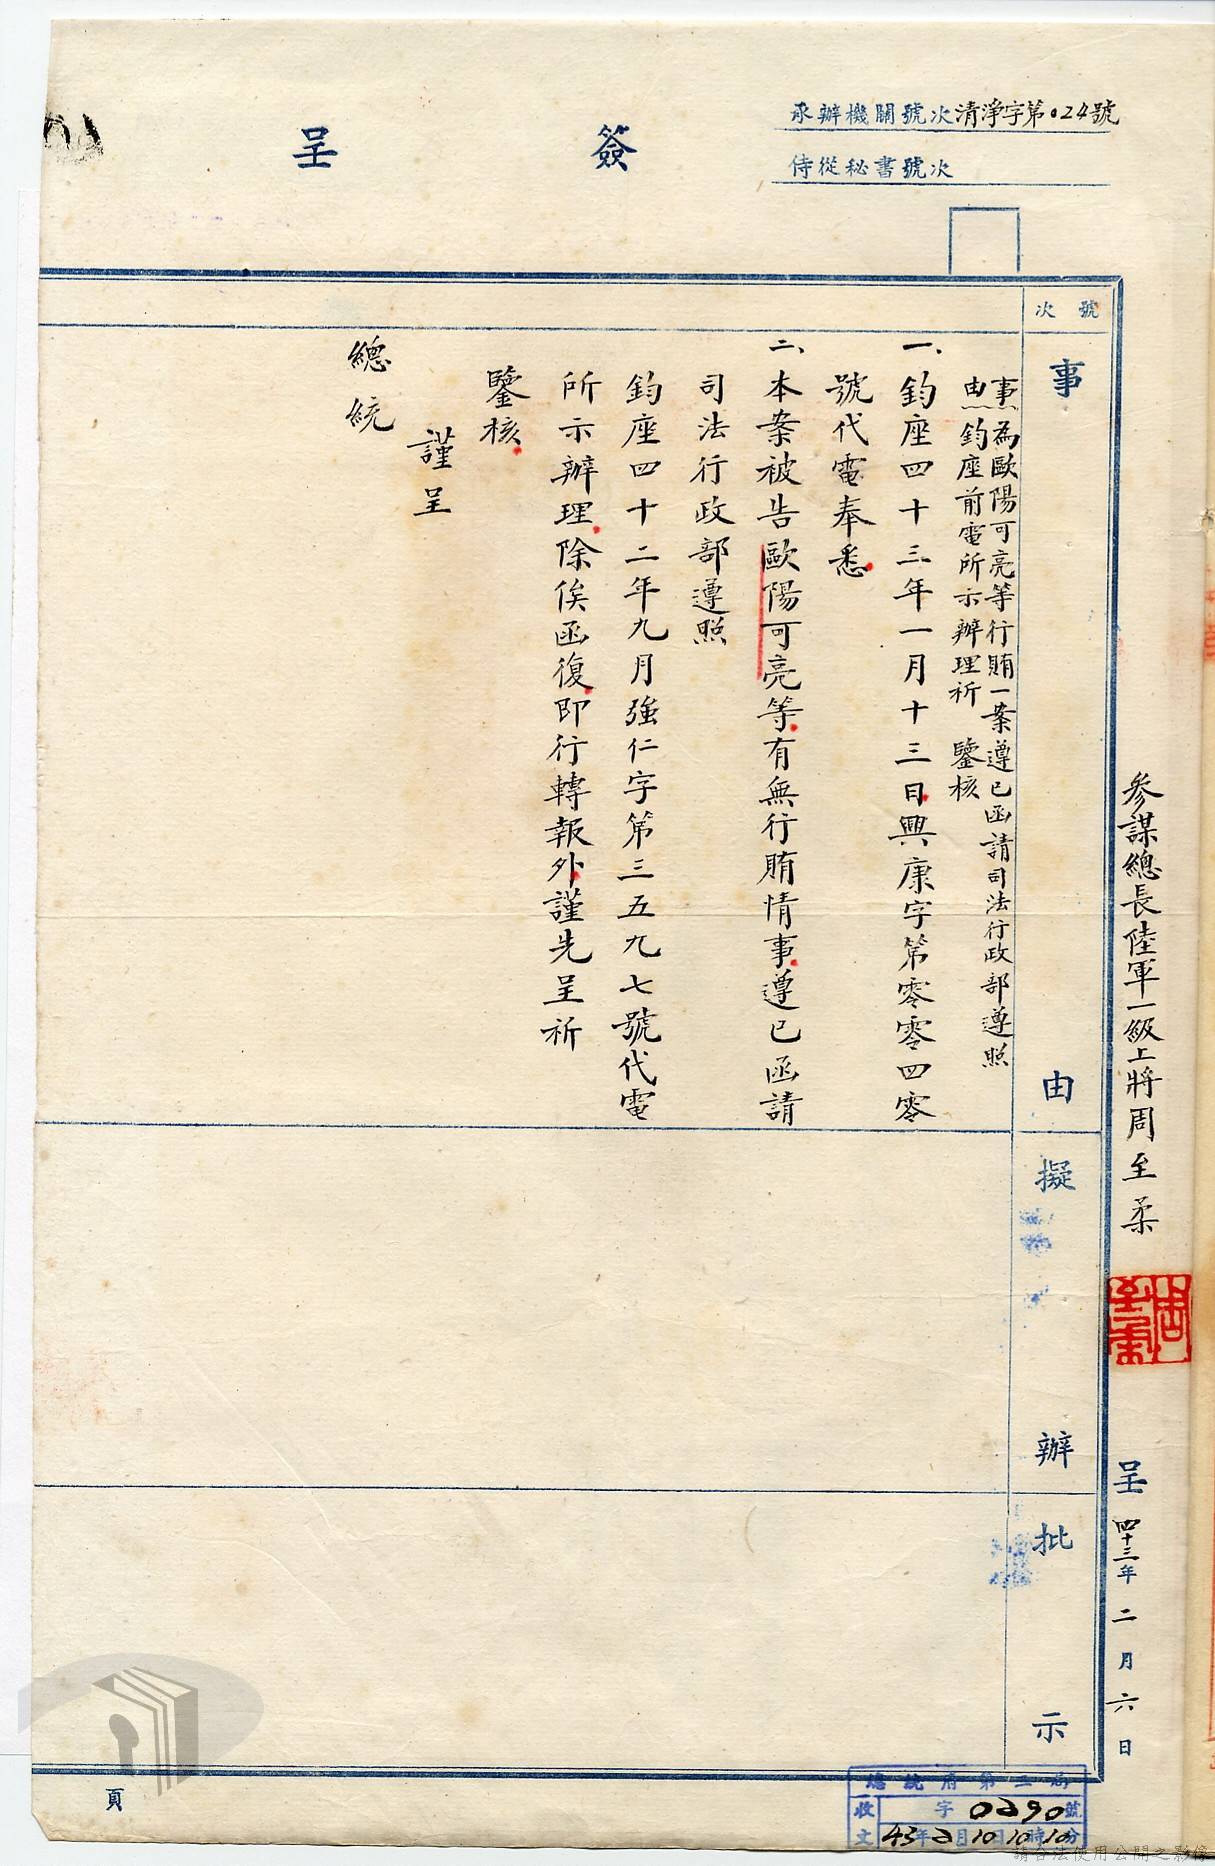 簽呈
承辦機關號次清淨字第024號
侍從秘書號次
參謀總長陸軍一級上將周至柔
周至柔
呈 四十三年二月六日
號次
事由
擬辦
批示
事為歐陽可亮等行賄一案遵已函請司法行政部遵照
由鈞座前電所示辦理祈 鑒核
一、鈞座四十三年一月十三日興康字第零零四零
號代電奉悉
二、本案被告歐陽可亮等有無行賄情事遵已函請
司法行政部遵照
鈞座四十二年九月強仁字第三五九七號代電
所示辦理除俟函復即行轉報外謹先呈祈
鑒核
謹呈
總統
頁
總統府第二局
收文 字0290號
43年2月10日10時10分
請合法使用公開之影像